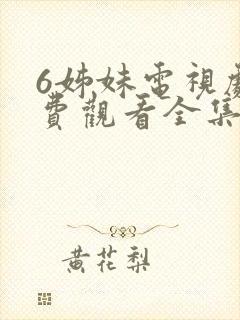 6姊妹電視劇
費觀看全集
黃花梨